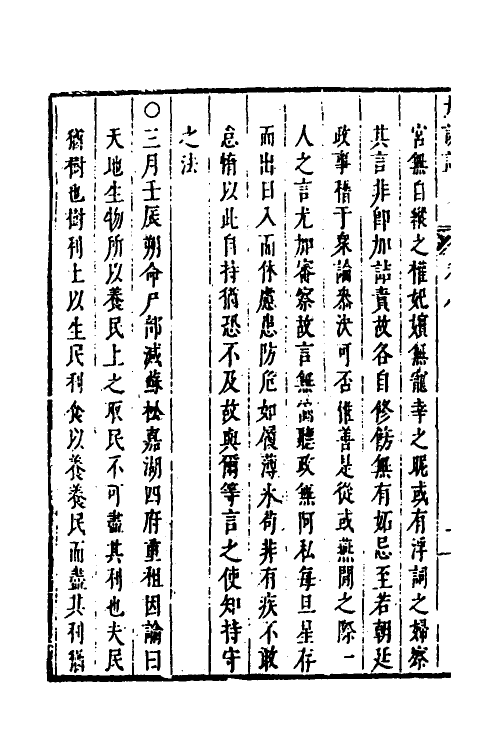 宮無自縱之權妃嬪無寵幸之昵或有浮詞之婦察
其言非即加詰責故各自修飭無有妬忌至若朝廷
政事稽于衆論叅決可否惟善是從或燕閒之際一
人之言尤加審察故言無偏聽政無阿私每旦星存
而出日入而休慮患防危如履薄氷苟非有疾不敢
怠惰以此自持猶恐不及故與爾等言之使知持守
之法
○三月壬辰朔命戸部減蘇松嘉湖四府重租因諭曰
天地生物所以養民上之取民不可盡其利也夫民
猶樹也樹利土以生民利食以養養民而盡其利猶